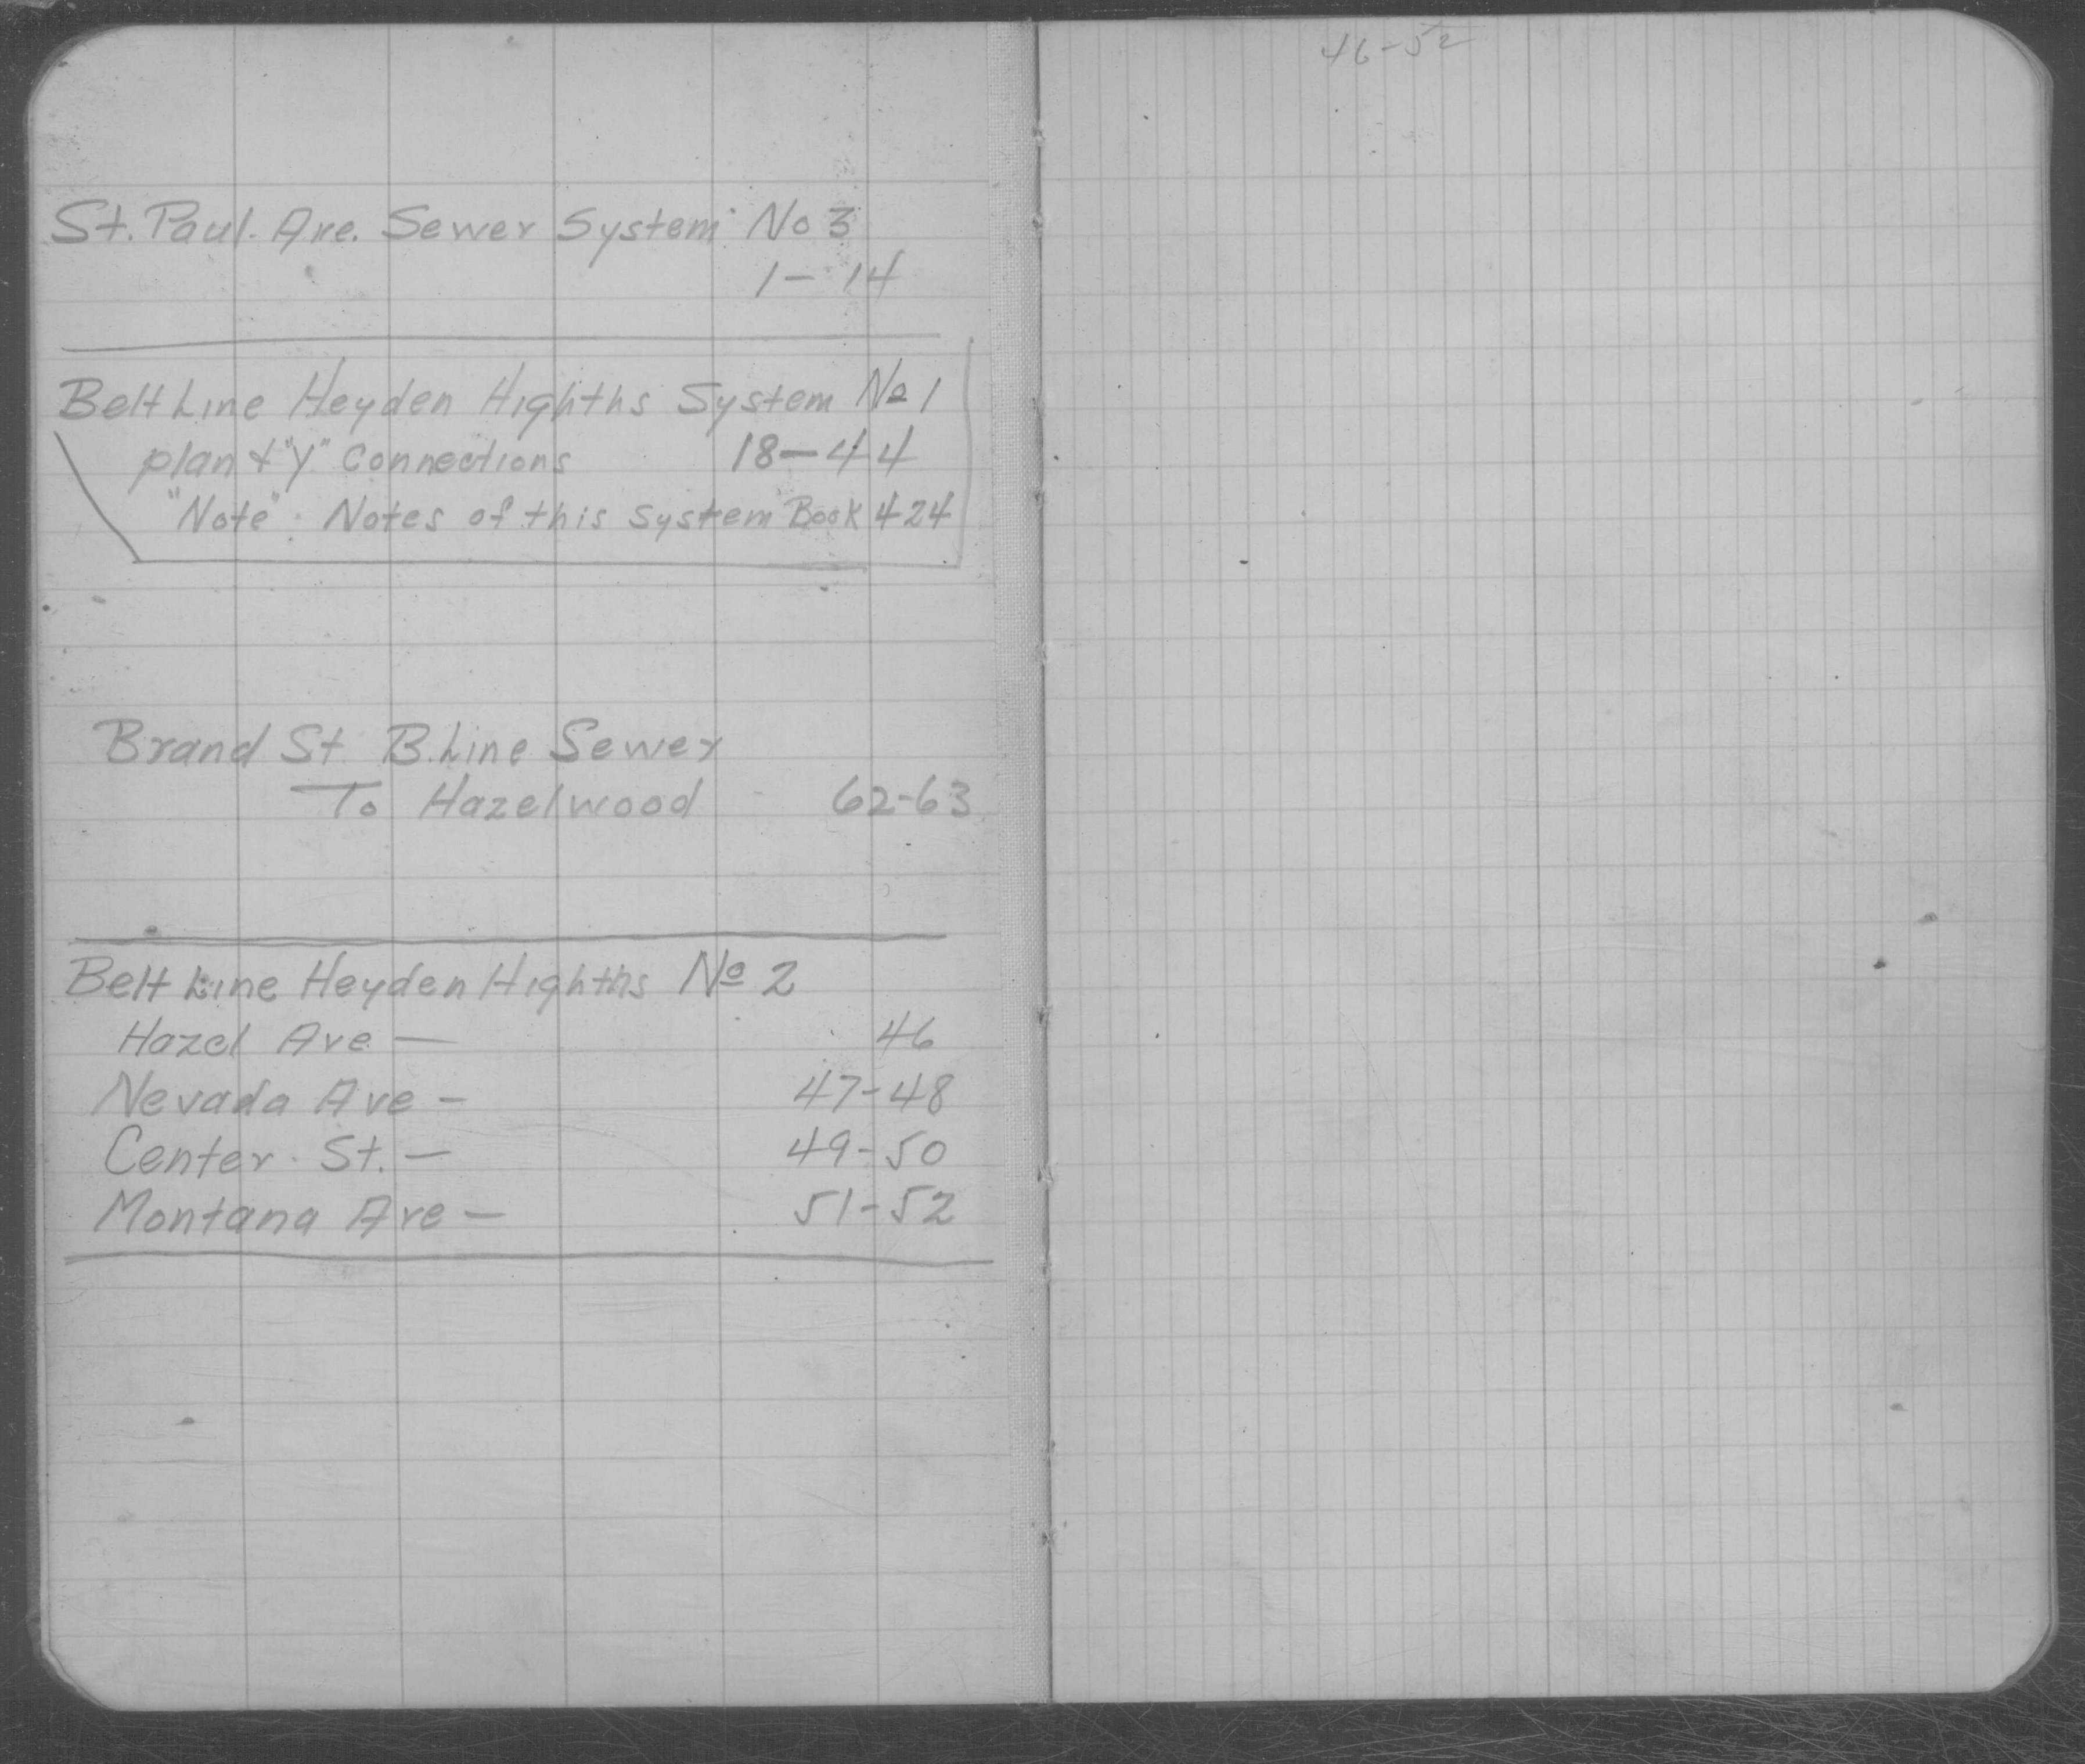 St. Paul. Ave. Sewer System No 3
1 - 14
Belt Line Heyden Highths System No 1
plan & "Y" Connections 18 - 44
"Note". Notes of this System Book 424
Brand St. B. Line Sewer
To Hazelwood - 62-63
Belt Line Heyden Highths No 2
Hazel Ave - 46
Nevada Ave - 47-48
Center St. - 49-50
Montana Ave - 51-52
46-52